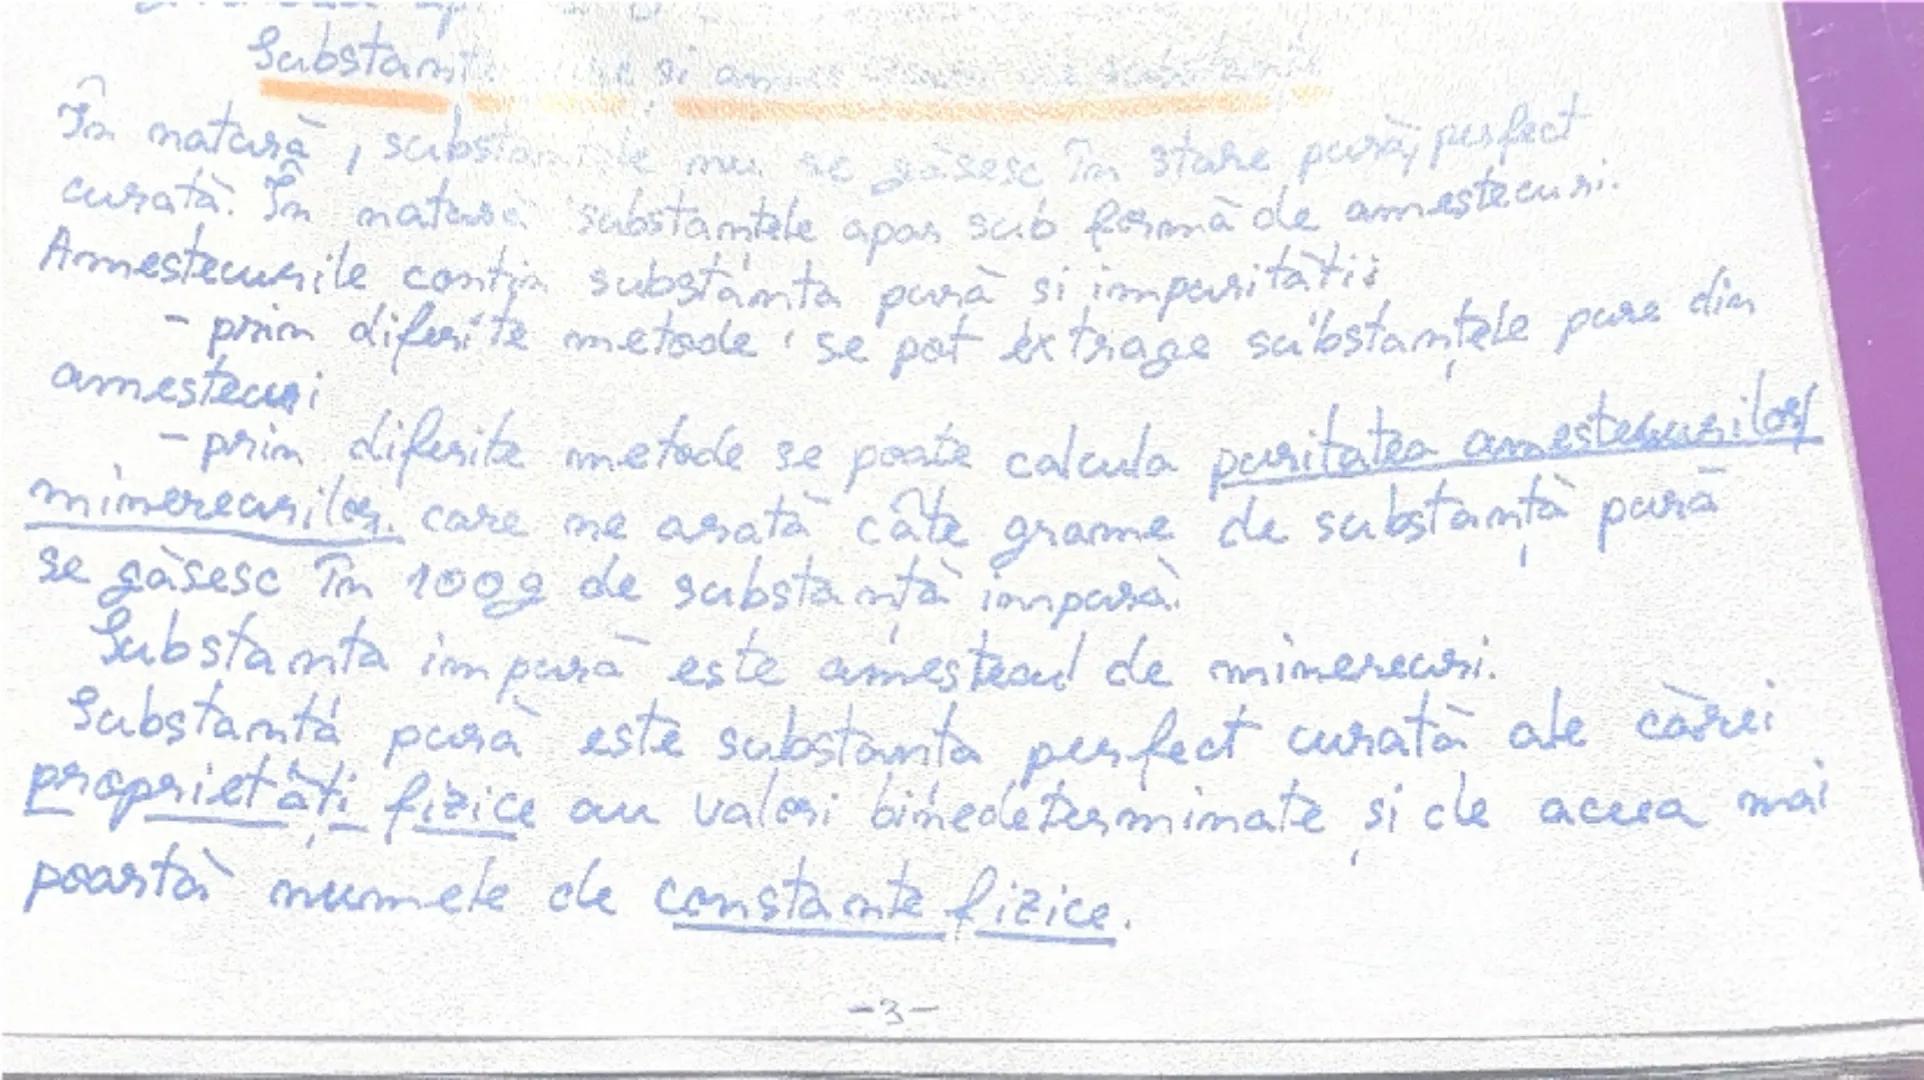 Substanțe pure și amestecuri de substanțe
În natură, substanțele nu se găsesc în stare pură, perfect
curată. În natură substanțele apar sub formă de amestecuri.
Amestecurile conțin substanța pură și impurități:
- prin diferite metode se pot extrage substanțele pure din
amestecuri
- prin diferite metode se poate calcula puritatea amestecurilor/
minereurilor. care ne arată câte grame de substanță pură
se găsesc în 100g de substanță impură.
Substanta impură este amestecul de minereuri.
Substantă pură este substanta perfect curată ale cărei
proprietăți fizice au valori binedeterminate și de aceea mai
poartă numele de constante fizice.
-3-